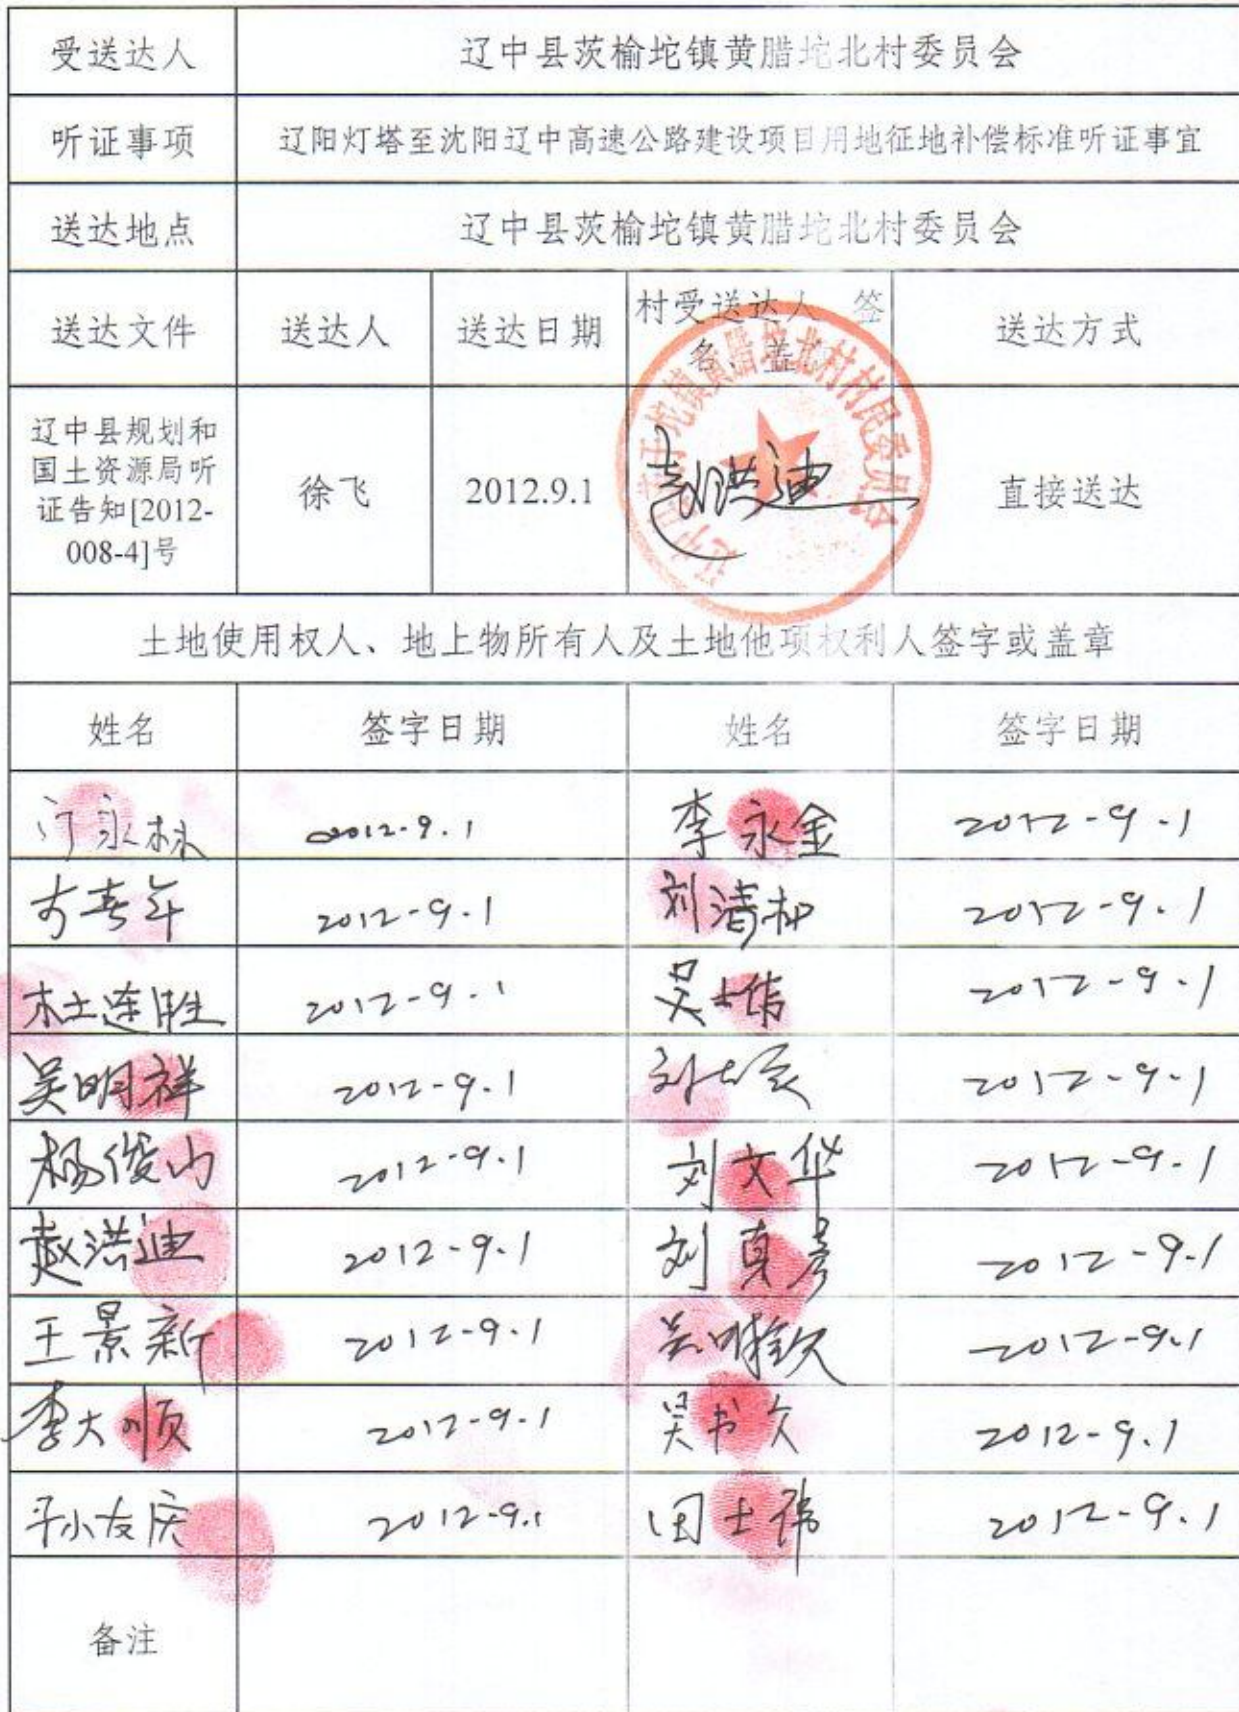 受送达人 辽中县茨榆坨镇黄腊坨北村委员会
听证事项 辽阳灯塔至沈阳辽中高速公路建设项目用地征地补偿标准听证事宜
送达地点 辽中县茨榆坨镇黄腊坨北村委员会
送达文件 送达人 送达日期 村受送达人 签 送达方式
名、盖
辽中县规划和
国土资源局听
证告知[2012-
008-4]号
徐飞 2012.9.1 赵洪迪 直接送达
镇黄腊坨北村村民委员会
土地使用权人、地上物所有人及土地他项权利人签字或盖章
姓名 签字日期 姓名 签字日期
永林 2012-9.1 李永金 2012-9.1
2012-9.1 刘清 2012-9.1
杜连胜 2012-9.1 吴士伟 2012-9.1
吴明祥 2012-9.1 刘 2012-9-1
杨俊山 2012-9.1 刘文华 2012-9.1
赵洪迪 2012-9.1 刘真彦 2012-9.1
王景新 2012-9.1 吴明钦 2012-9.1
李大顺 2012-9.1 吴书文 2012-9.1
孙友庆 2012-9.1 田士伟 2012-9.1
备注